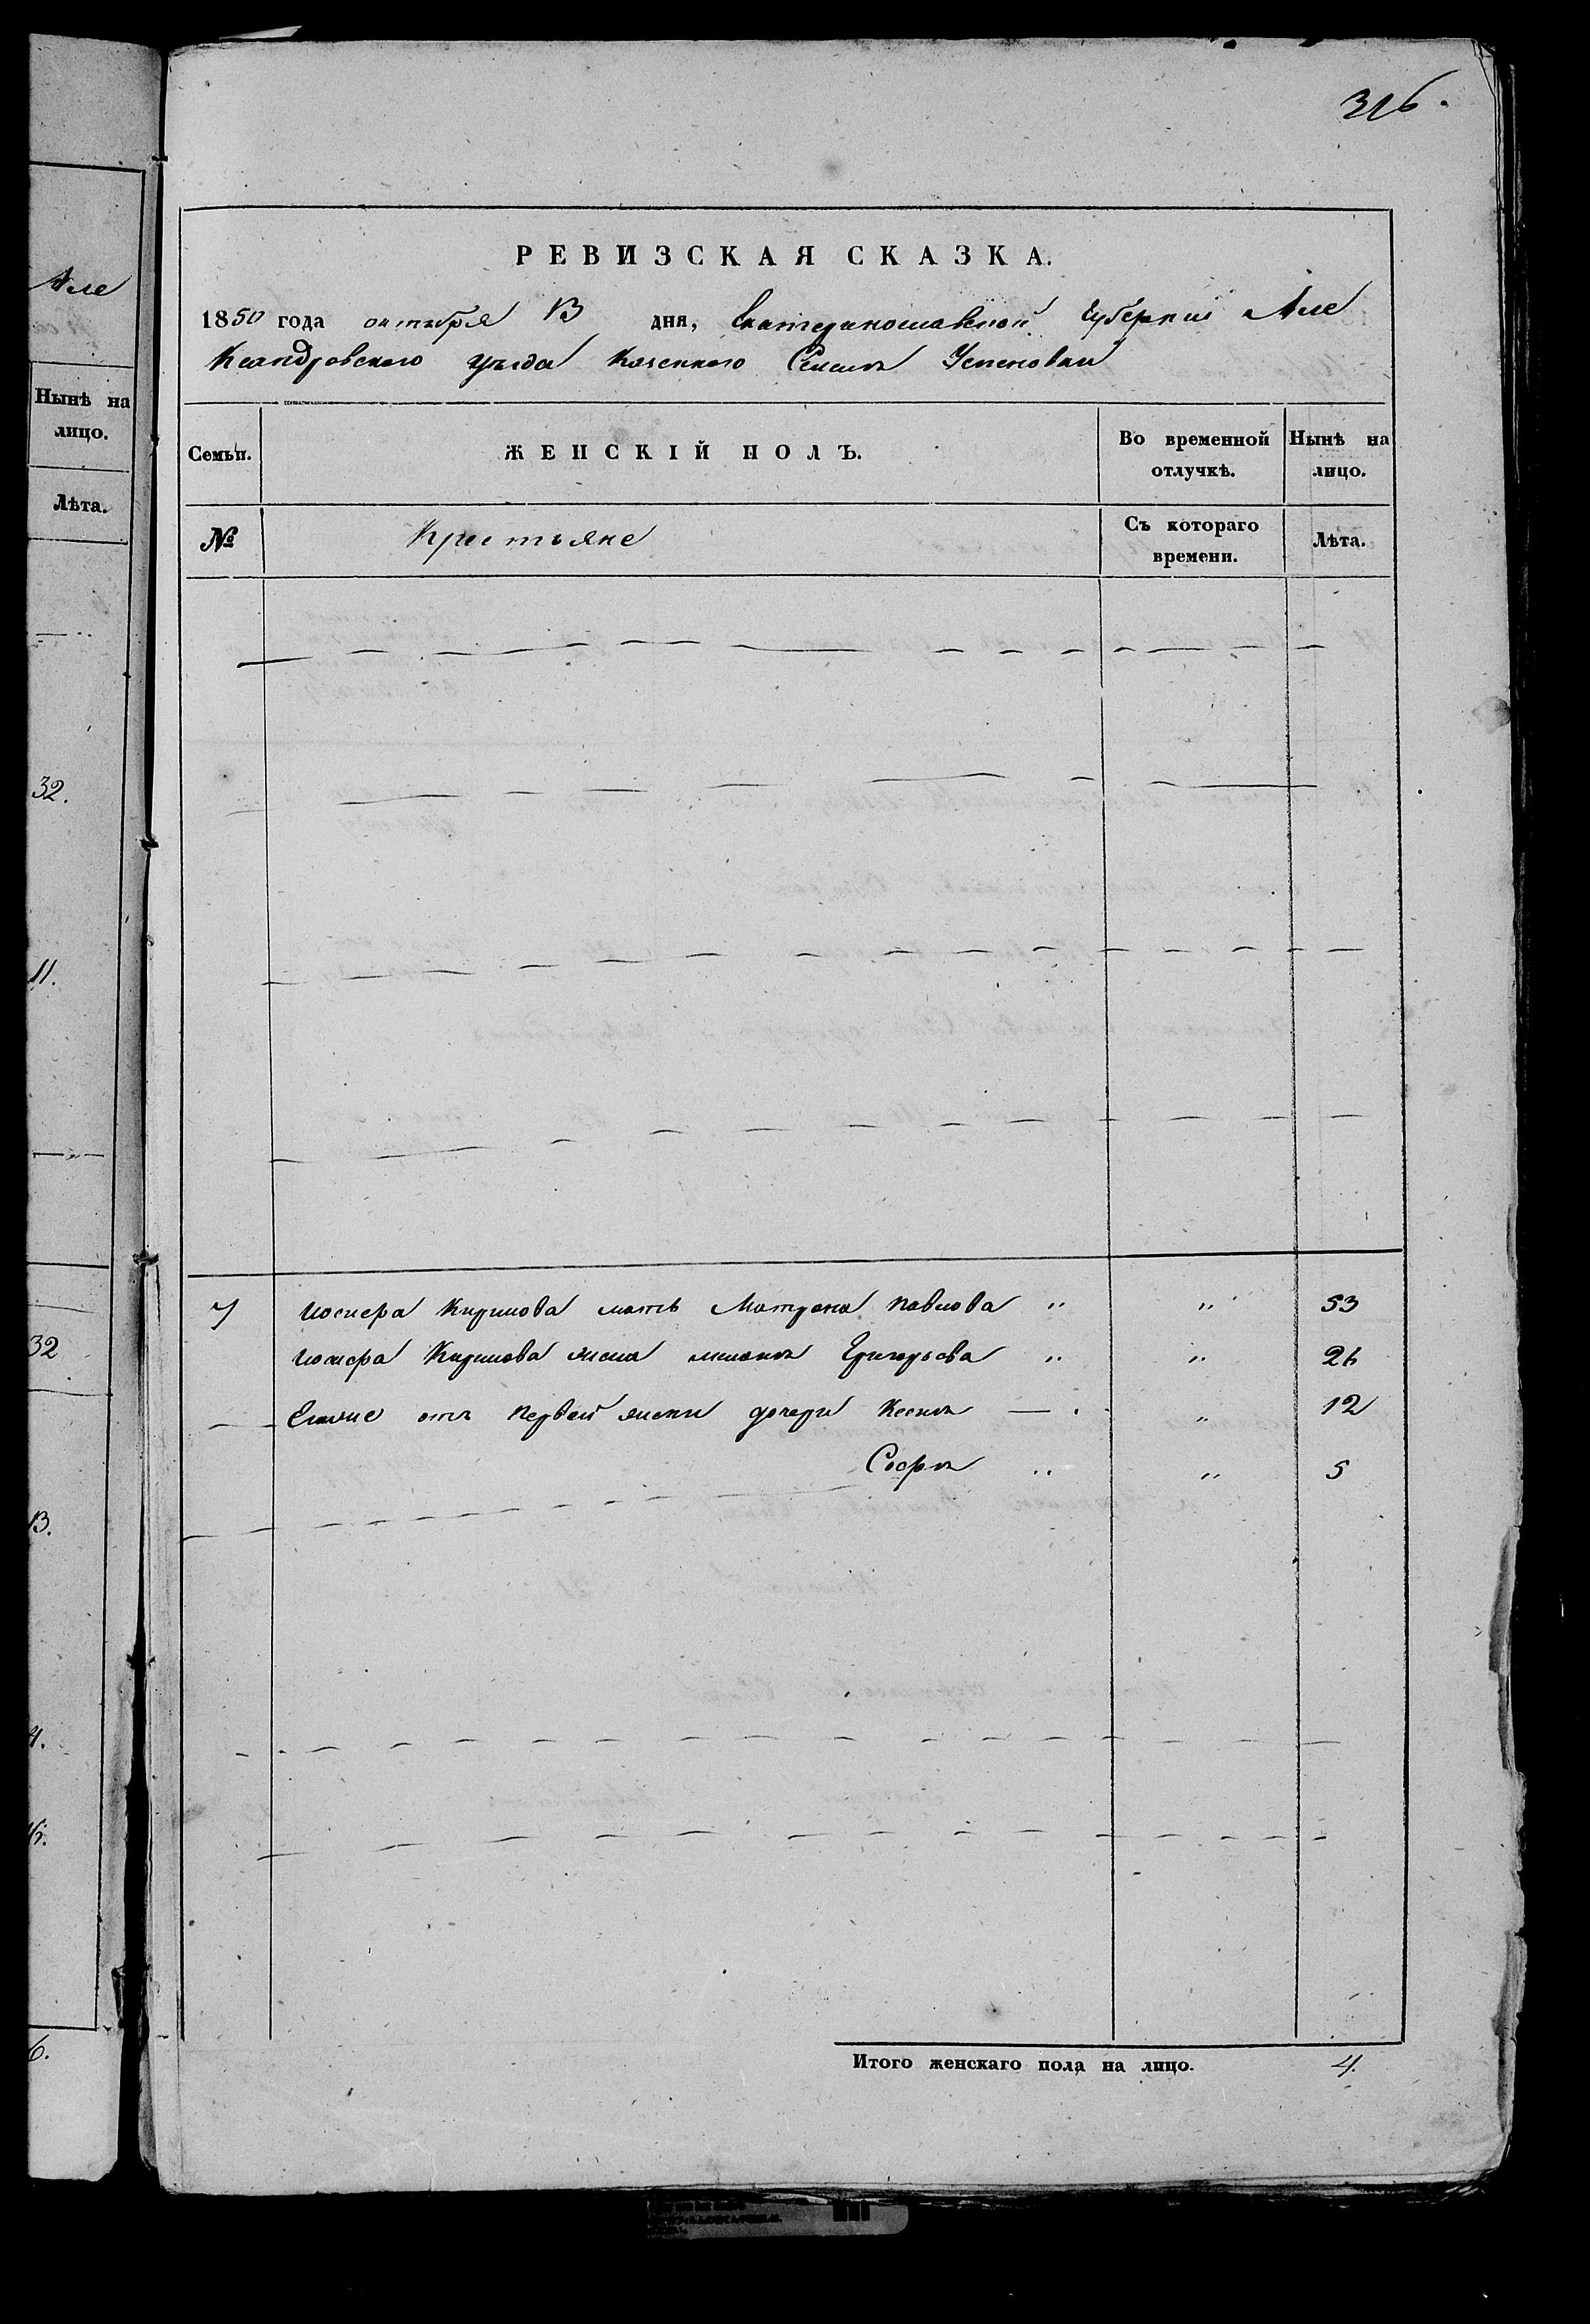 316.
РЕВИЗСКАЯ СКАЗКА.
1850 года октября 13 дня, Екатеринославской Губернии Але
ксандровского уезда казенного Селения Успеновки
Семьи. ЖЕНСКІЙ ПОЛЪ. Во временной отлучкѣ. Нынѣ на лицо.
№ Крестьяне Съ котораго времени. Лѣта.
7 Кирилова мать Матрена павлова " " 53
Кирилова жена Григорьева " " 26
от первой жены дочери — " 12
Софья " " 5
Итого женскаго пола на лицо. 4.
Але
Нынѣ на
лицо.
Лѣта.
32.
11.
32
13.
4.
6.